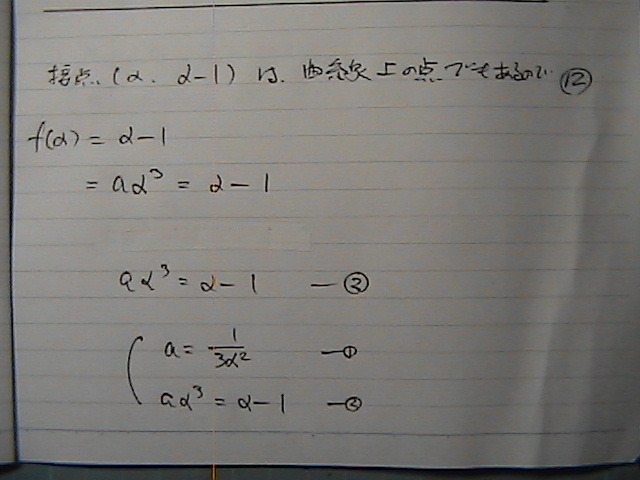 接点、(α、α-1) は、曲線上の点でもあるので ⑫
f(α) = α-1
= aα³ = α-1
aα³ = α-1 — ②
a = 1/3α² — ①
aα³ = α-1 — ②